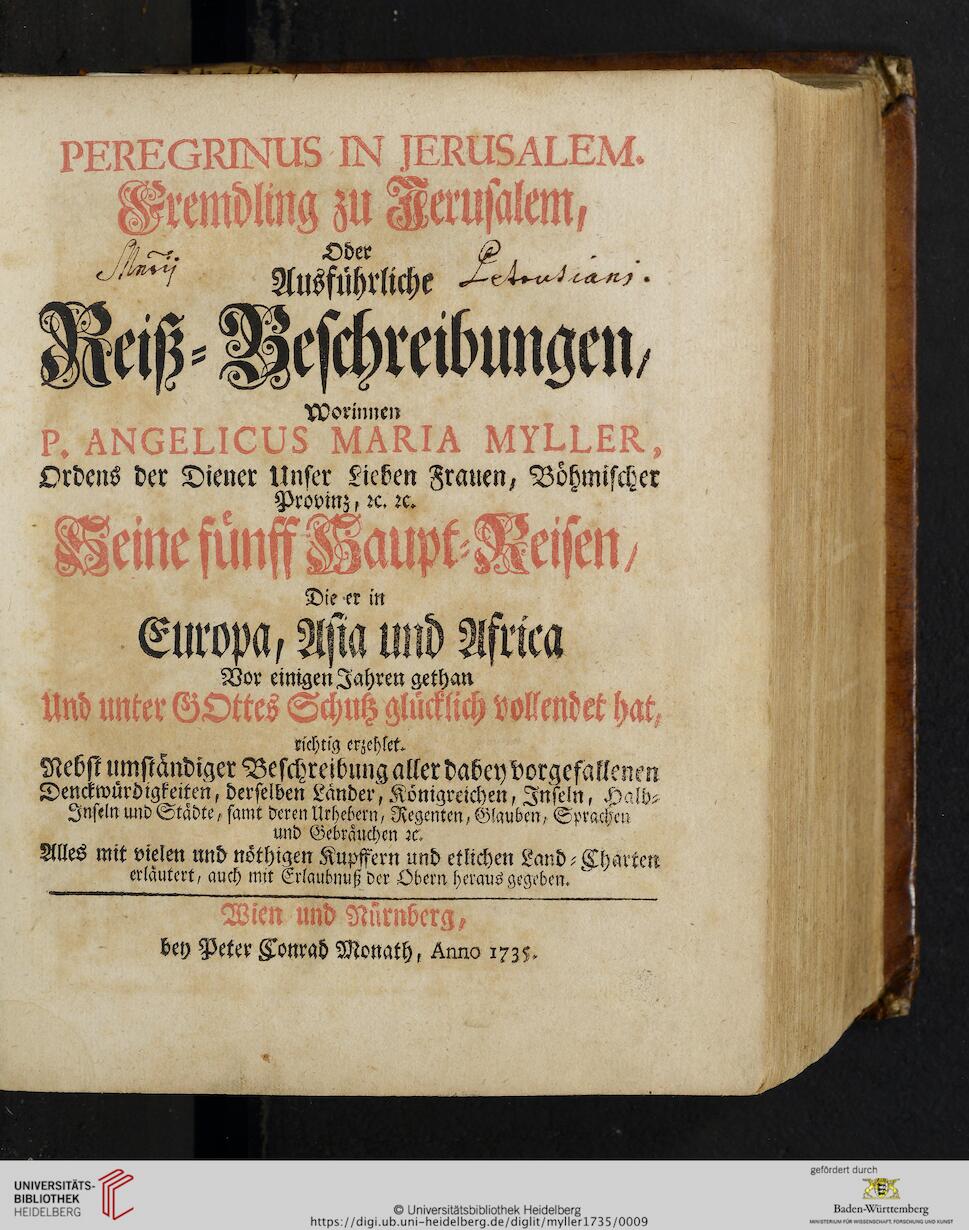 PEREGRINUS IN JERUSALEM.
Fremdling zu Jerusalem,
Oder
Ausführliche
Reiß-Beschreibungen,
Worinnen
P. ANGELICUS MARIA MYLLER,
Ordens der Diener Unser Lieben Frauen, Böhmischer
Provinz, ꝛc. ꝛc.
Seine fünff Haupt-Reisen,
Die er in
Europa, Asia und Africa
Vor einigen Jahren gethan
Und unter GOttes Schutz glücklich vollendet hat,
richtig erzehlet.
Nebst umständiger Beschreibung aller dabey vorgefallenen
Denckwürdigkeiten, derselben Länder, Königreichen, Inseln, Halb-
Inseln und Städte, samt deren Urhebern, Regenten, Glauben, Sprachen
und Gebräuchen ꝛc.
Alles mit vielen und nöthigen Kupffern und etlichen Land-Charten
erläutert, auch mit Erlaubnuß der Obern heraus gegeben.
Wien und Nürnberg,
bey Peter Conrad Monath, Anno 1735.
UNIVERSITÄTS-
BIBLIOTHEK
HEIDELBERG
© Universitätsbibliothek Heidelberg
https://digi.ub.uni-heidelberg.de/diglit/myller1735/0009
gefördert durch
Baden-Württemberg
MINISTERIUM FÜR WISSENSCHAFT, FORSCHUNG UND KUNST